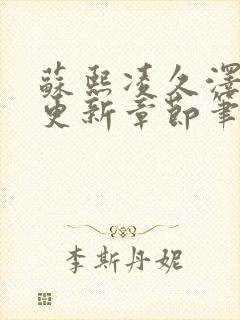 蘇熙凌久澤
更新章節筆
李斯丹妮